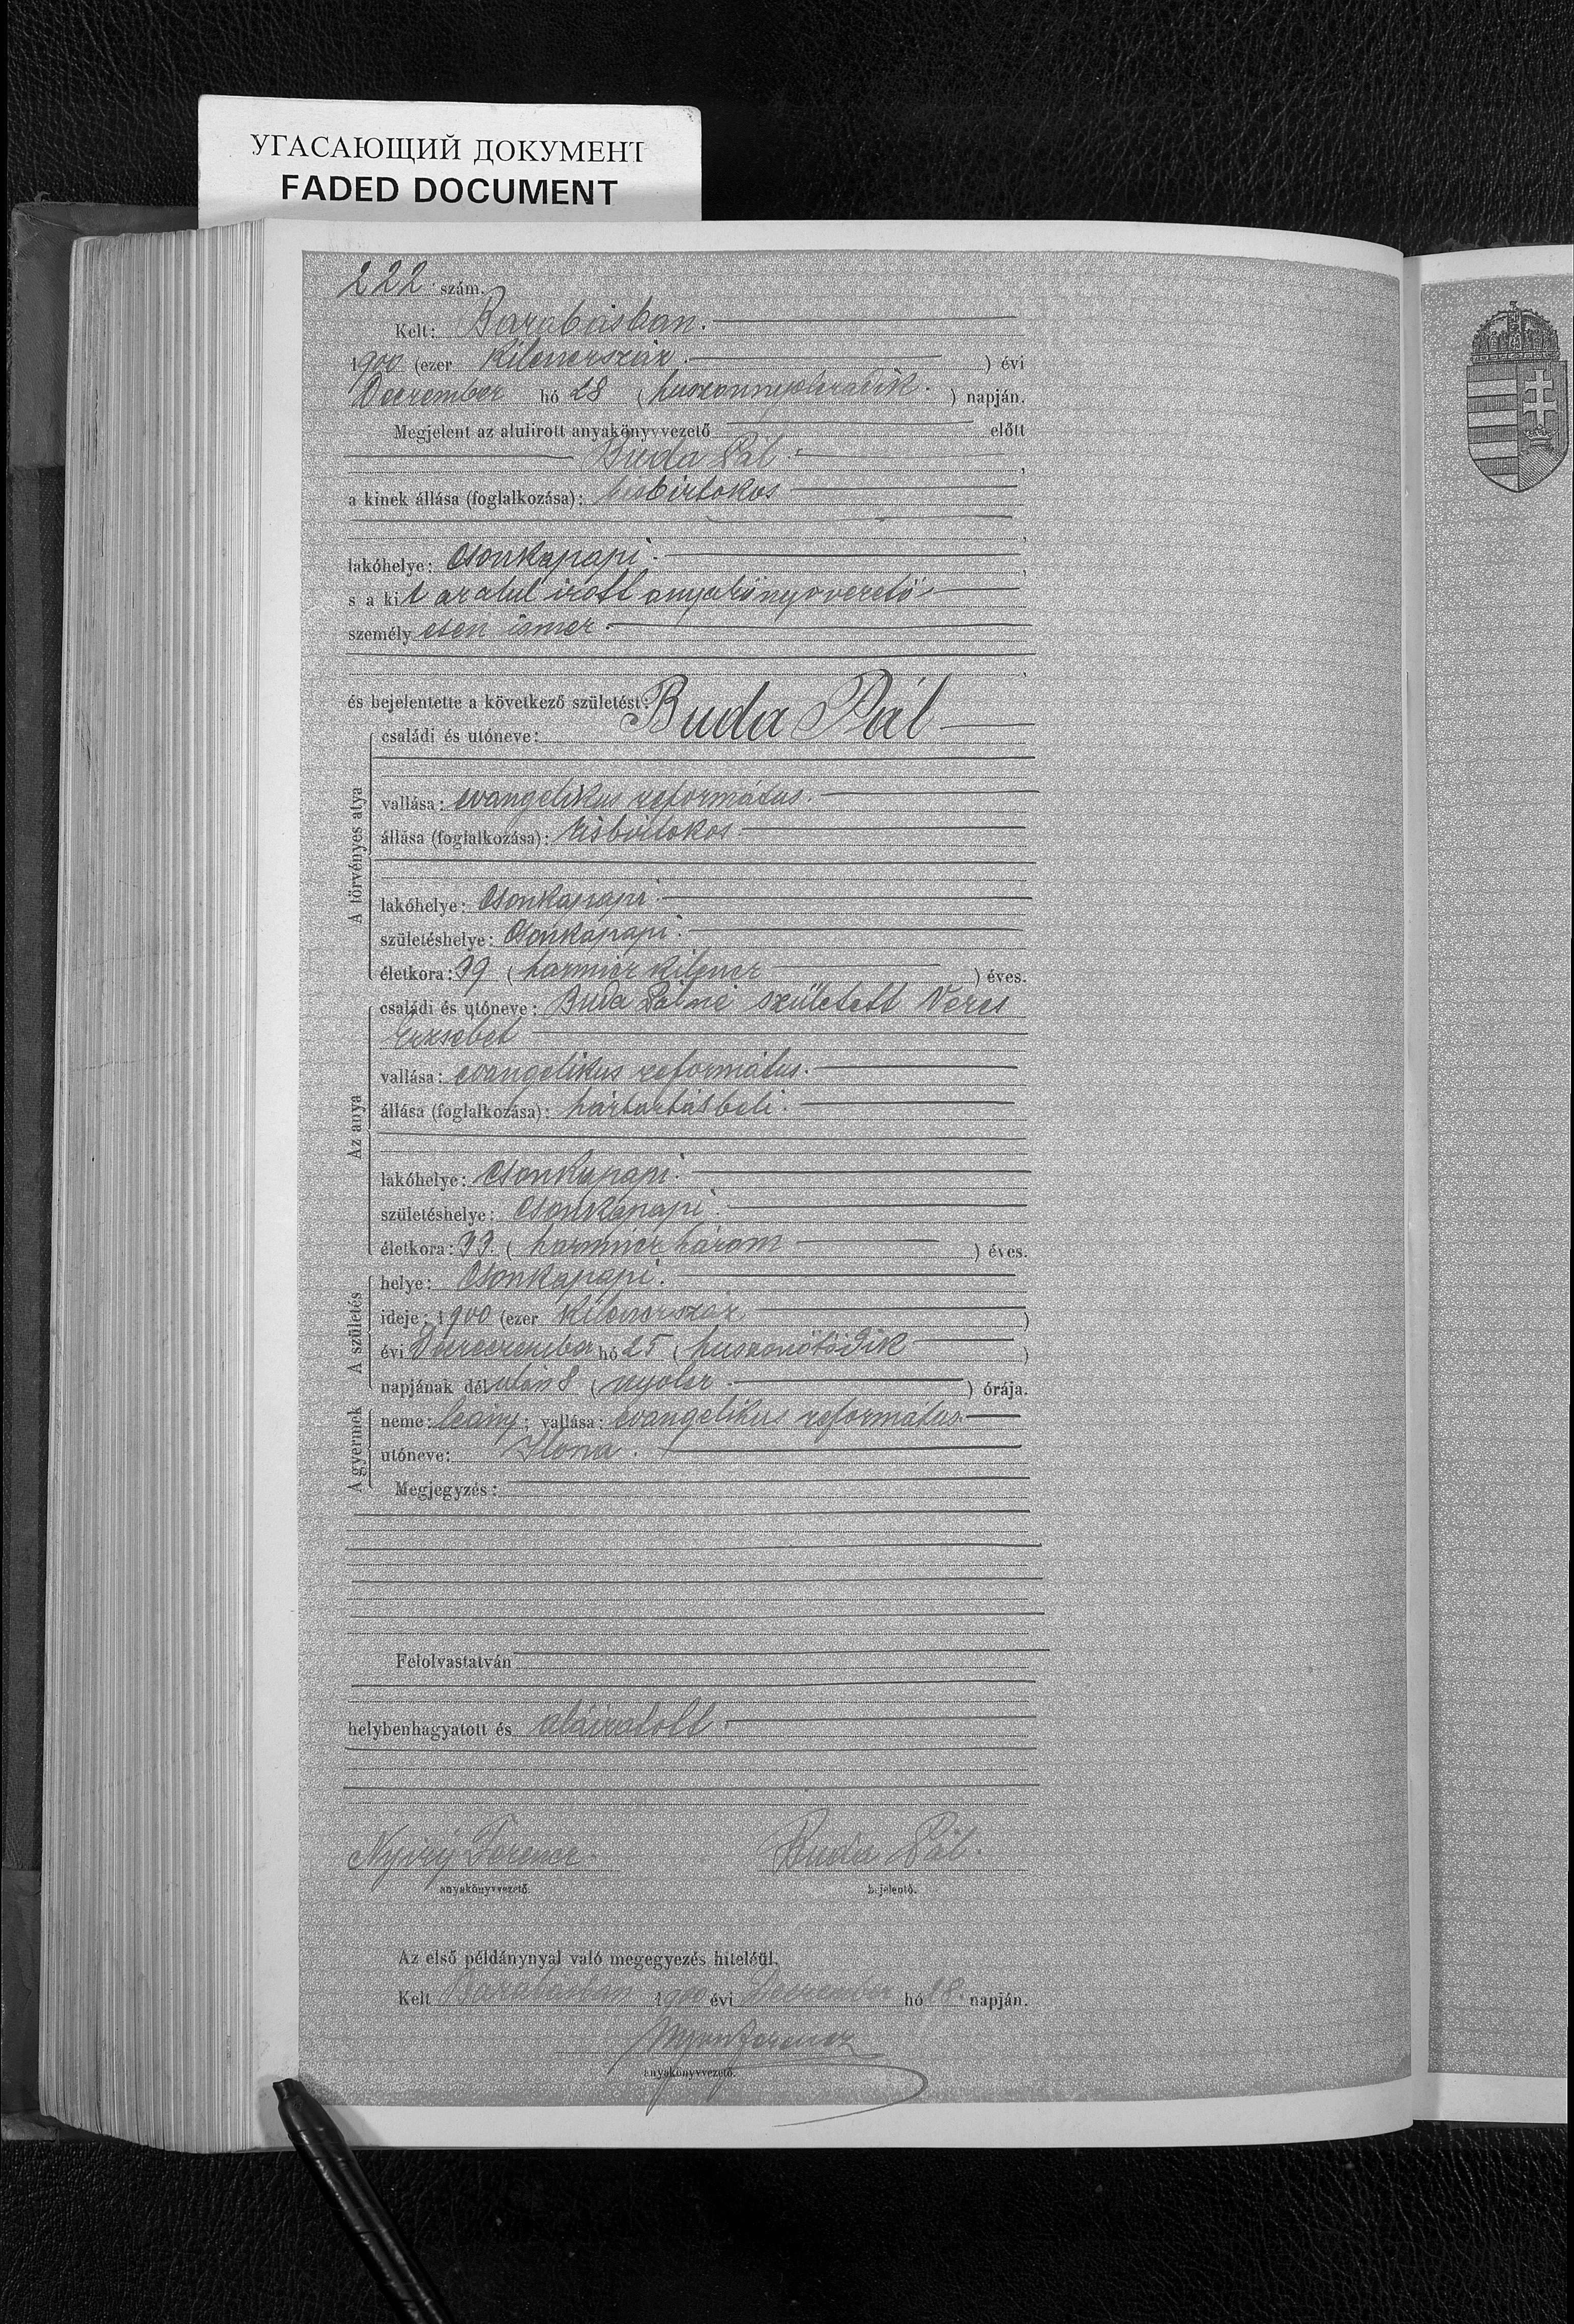 УГАСАЮЩИЙ ДОКУМЕНТ
FADED DOCUMENT
222 szám.
Kelt: Barabásban.
1900 (ezer kilenczszáz.) évi
Deczember hó 28 (huszonnyolczadik.) napján.
Megjelent az alulirott anyakönyvvezető előtt
Buda Pál
a kinek állása (foglalkozása): kisbirtokos
lakóhelye: Csonkapapi.
s a kit az alul irott anyakönyvvezető
személyesen ismer.
és bejelentette a következő születést:
A törvényes atya
családi és utóneve: Buda Pál
vallása: evangelikus református.
állása (foglalkozása): kisbirtokos.
lakóhelye: Csonkapapi.
születéshelye: Csonkapapi.
életkora: 39 (harmincz kilencz) éves.
Az anya
családi és utóneve: Buda Pálné született Veres
Erzsébet
vallása: evangelikus református.
állása (foglalkozása): háztartásbeli.
lakóhelye: Csonkapapi.
születéshelye: Csonkapapi.
életkora: 33. (harmincz három) éves.
A születés
helye: Csonkapapi.
ideje: 1900 (ezer kilenczszáz)
évi Deczember hó 25 (huszonötödik)
napjának délután 8 (nyolcz.) órája.
A gyermek
neme: leány; vallása: evangelikus református.
utóneve: Ilona.
Megjegyzés:
Felolvastatván
helybenhagyatott és aláiratott.
Nyiry Ferencz. Buda Pál.
anyakönyvvezető. bejelentő.
Az első példánynyal való megegyezés hiteléül.
Kelt Barabásban 1900 évi Deczember hó 28. napján.
Nyiry Ferencz
anyakönyvvezető.